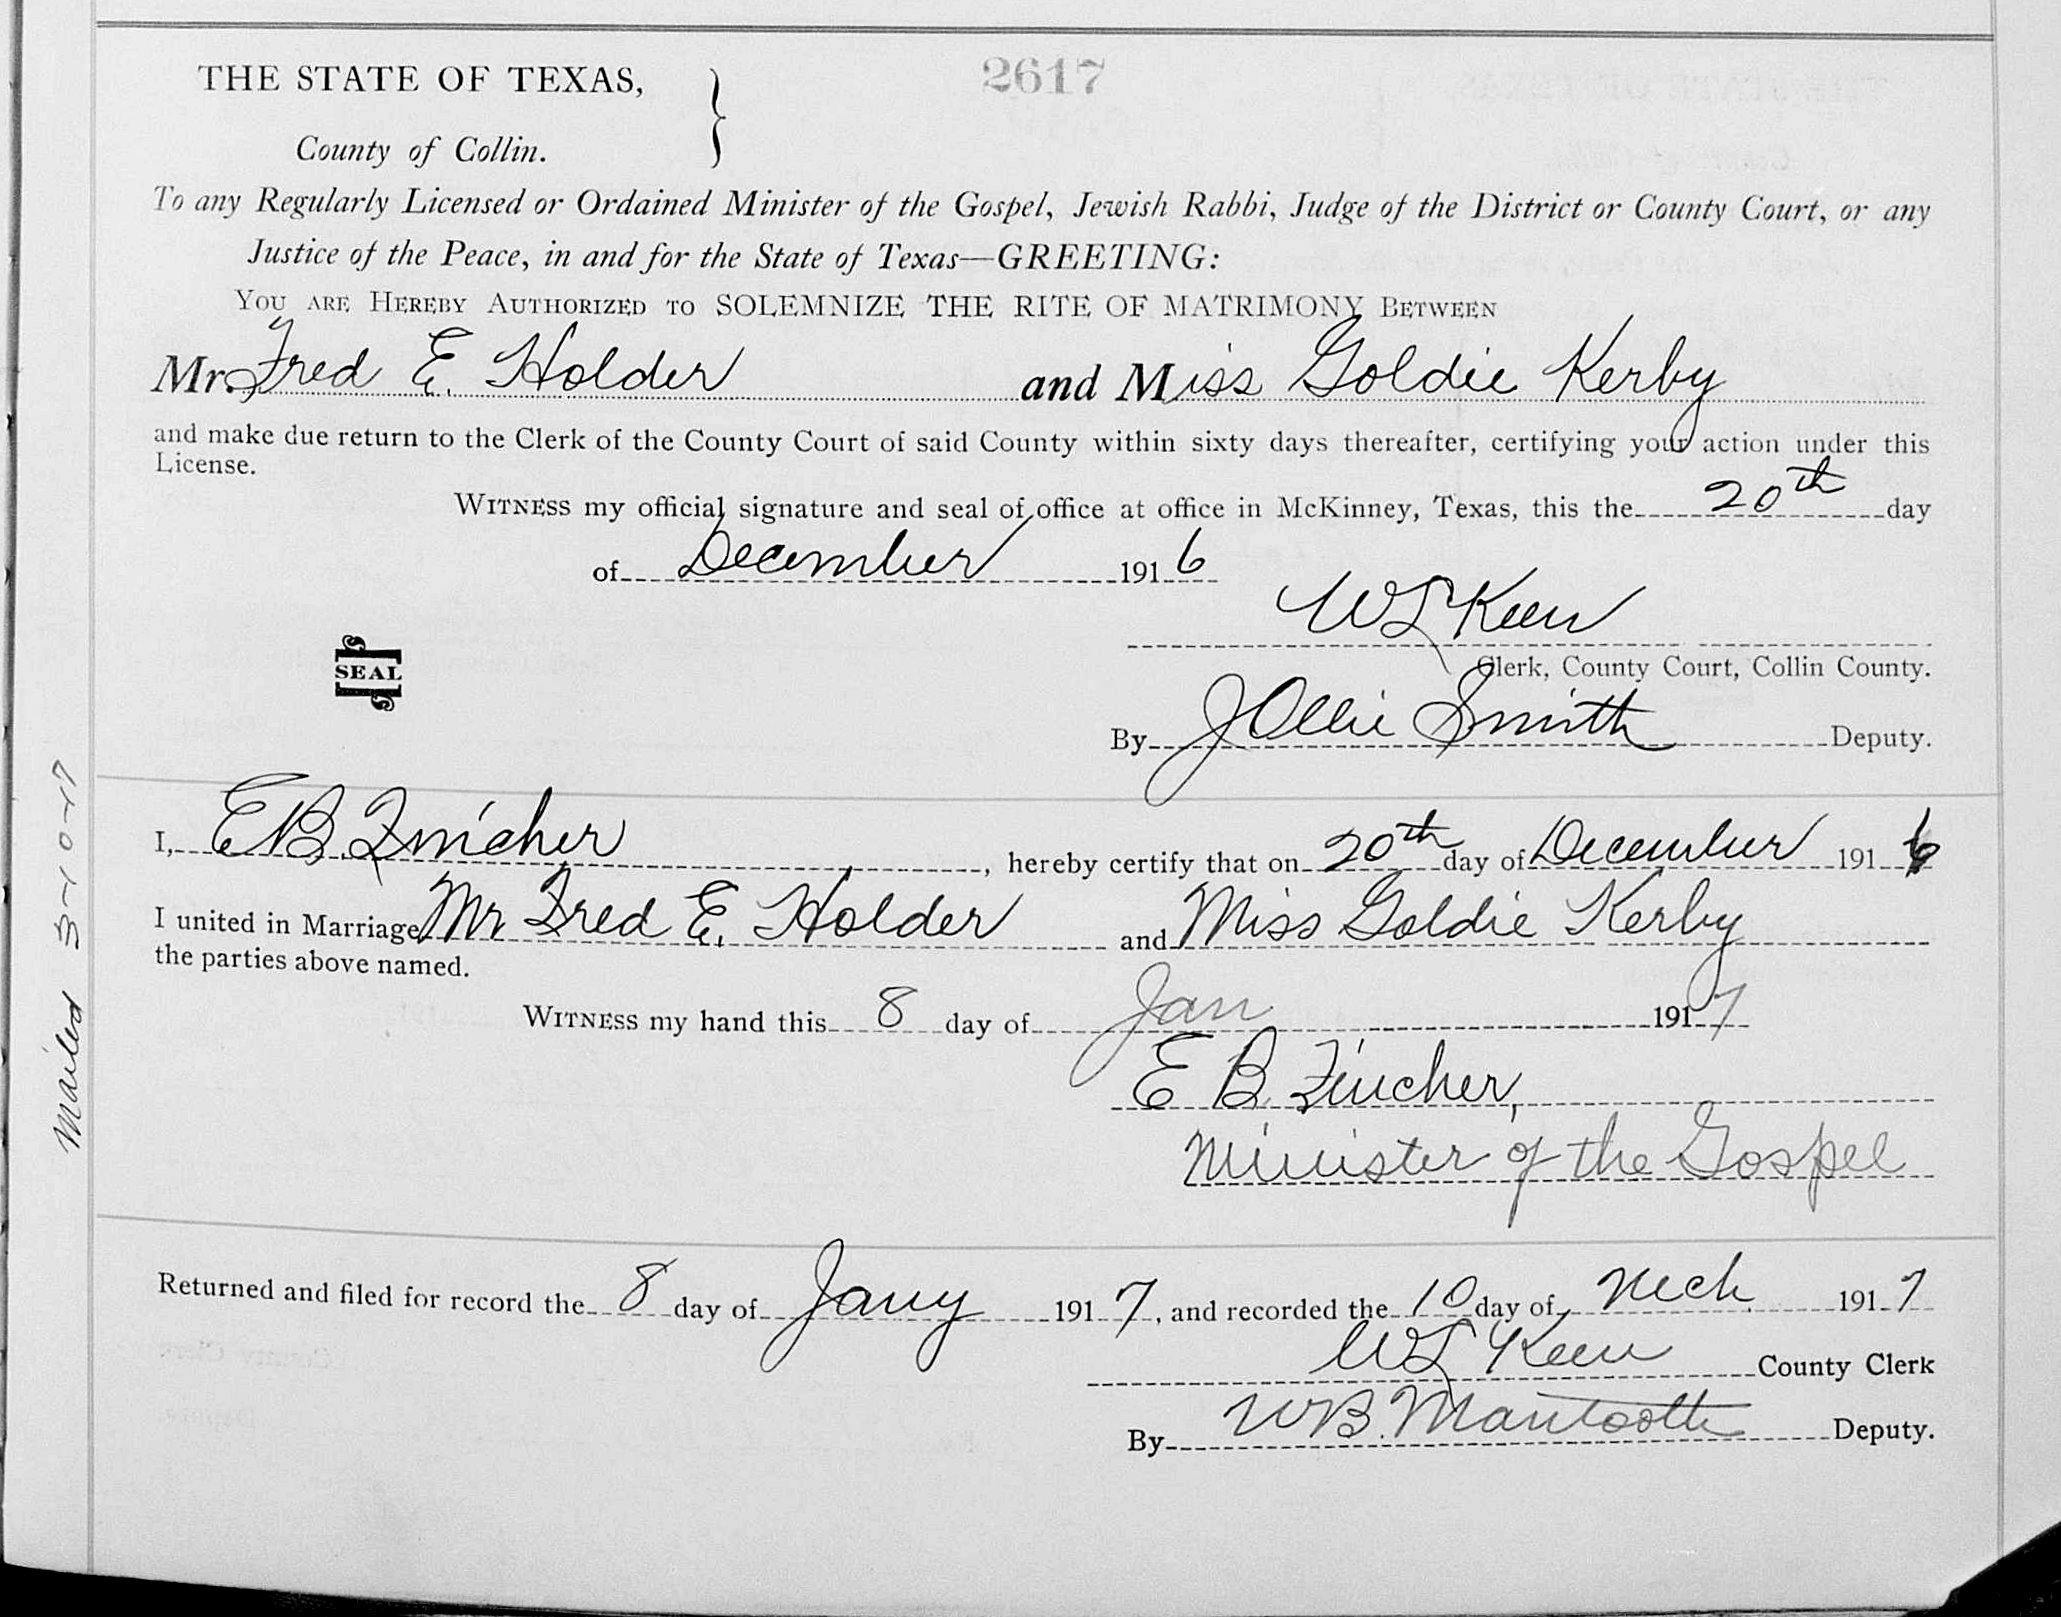 2617
THE STATE OF TEXAS,
County of Collin.
To any Regularly Licensed or Ordained Minister of the Gospel, Jewish Rabbi, Judge of the District or County Court, or any
Justice of the Peace, in and for the State of Texas—GREETING:
YOU ARE HEREBY AUTHORIZED TO SOLEMNIZE THE RITE OF MATRIMONY BETWEEN
Mr. Fred E. Holder and Miss Goldie Kerby
and make due return to the Clerk of the County Court of said County within sixty days thereafter, certifying your action under this
License.
WITNESS my official signature and seal of office at office in McKinney, Texas, this the 20th day
of December 1916
W L Keen
SEAL
Clerk, County Court, Collin County.
By J Ollie Smith Deputy.
I, E B Fincher, hereby certify that on 20th day of December 1916
I united in Marriage Mr Fred E. Holder and Miss Goldie Kerby
the parties above named.
WITNESS my hand this 8 day of Jan 1917
E B Fincher,
Minister of the Gospel
Returned and filed for record the 8 day of Jany 1917, and recorded the 10 day of Mch 1917
W L Keen County Clerk
By W B. Mantooth Deputy.
Mailed 3-10-17